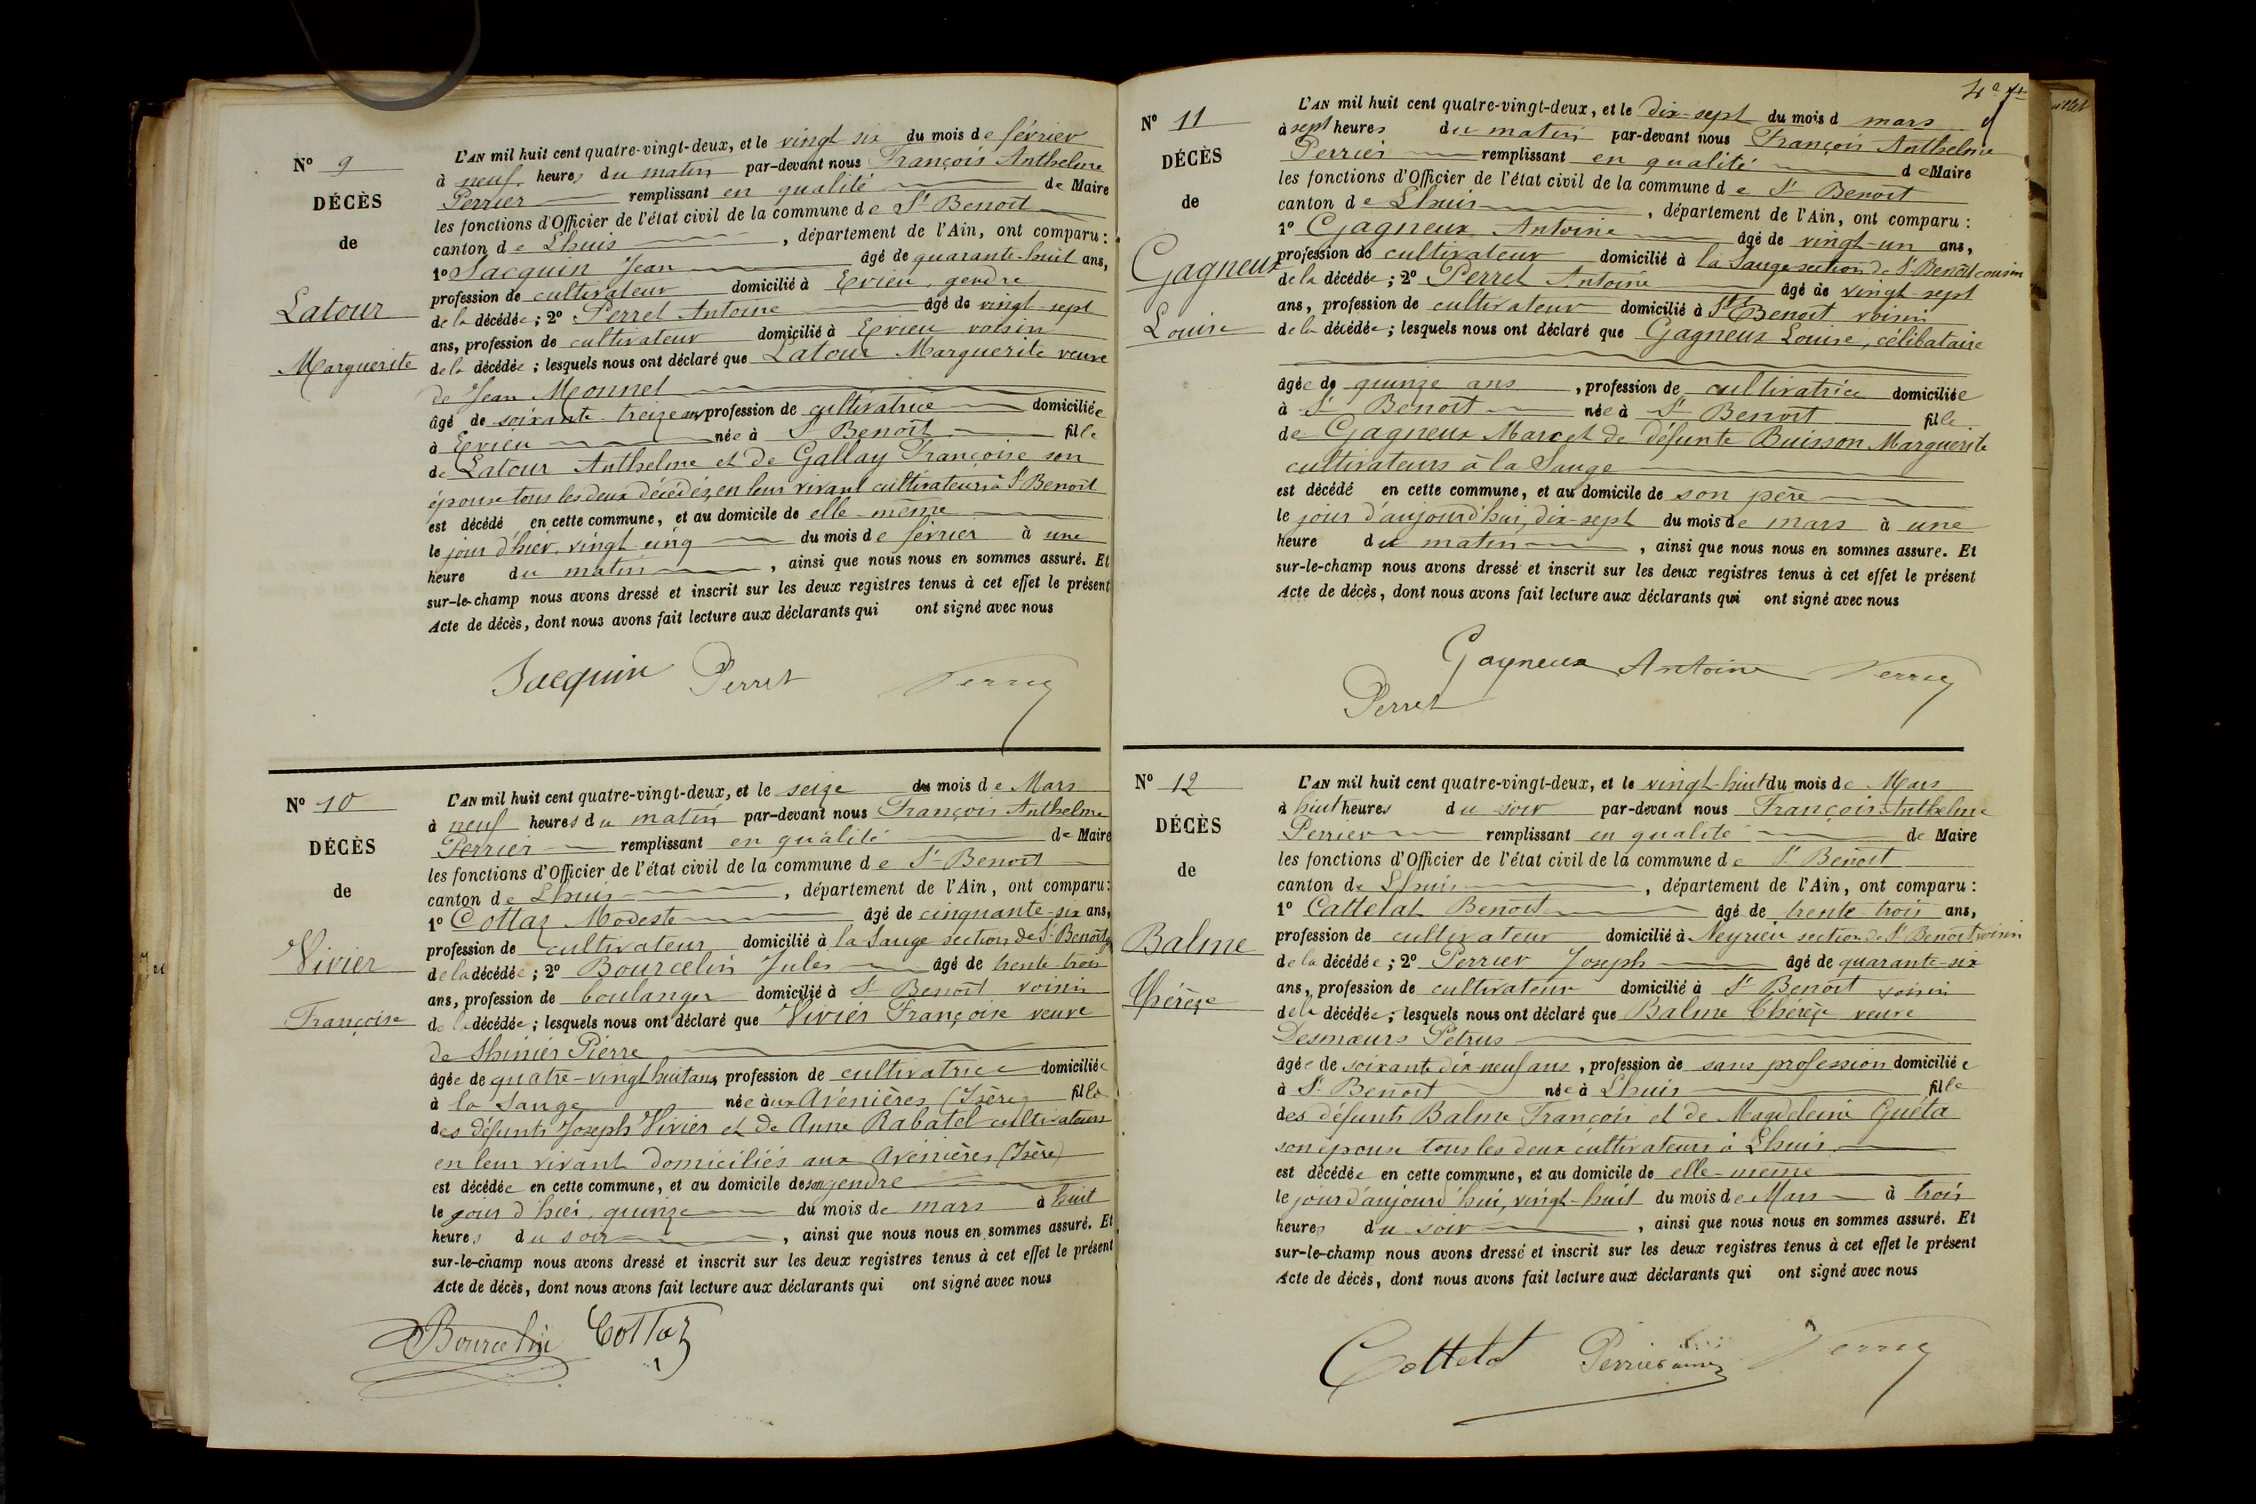 N° 9
DÉCÈS
de
Latour
Marguerite
L'AN mil huit cent quatre-vingt-deux, et le vingt six du mois de février
à neuf heures du matin par-devant nous François Anthelme
Perrier remplissant en qualité de Maire
les fonctions d'Officier de l'état civil de la commune de St Benoit
canton de Lhuis, département de l'Ain, ont comparu :
1° Jacquin Jean âgé de quarante-huit ans,
profession de cultivateur domicilié à Evieu, gendre
de la décédée ; 2° Perret Antoine âgé de vingt-sept
ans, profession de cultivateur domicilié à Evieu voisin
de la décédée ; lesquels nous ont déclaré que Latour Marguerite veuve
de Jean Monnet
âgé de soixante-treize ans, profession de cultivatrice domiciliée
à Evieu née à St Benoit fille
de Latour Anthelme et de Gallay Françoise son
épouse tous les deux décédés, en leur vivant cultivateurs à St Benoit
est décédé en cette commune, et au domicile de elle-même
le jour d'hier, vingt cinq du mois de février à une
heure du matin, ainsi que nous nous en sommes assuré. Et
sur-le-champ nous avons dressé et inscrit sur les deux registres tenus à cet effet le présent
Acte de décès, dont nous avons fait lecture aux déclarants qui ont signé avec nous
Jacquin Perret Perrier
N° 10
DÉCÈS
de
Vivier
Françoise
L'AN mil huit cent quatre-vingt-deux, et le seize du mois de Mars
à neuf heures du matin par-devant nous François Anthelme
Perrier remplissant en qualité de Maire
les fonctions d'Officier de l'état civil de la commune de St Benoit
canton de Lhuis, département de l'Ain, ont comparu :
1° Cottaz Modeste âgé de cinquante-six ans,
profession de cultivateur domicilié à la Sauge section de St Benoit
de la décédée ; 2° Bourcelin Jules âgé de trente-trois
ans, profession de boulanger domicilié à St Benoit voisin
de la décédée ; lesquels nous ont déclaré que Vivier Françoise veuve
de Thinier Pierre
âgée de quatre-vingt huit ans, profession de cultivatrice domiciliée
à la Sauge née aux Avenières (Isère) fille
des défunts Joseph Vivier et de Anne Rabatel cultivateurs
en leur vivant domiciliés aux Avenières (Isère)
est décédée en cette commune, et au domicile de son gendre
le jour d'hier, quinze du mois de mars à huit
heures du soir, ainsi que nous nous en sommes assuré. Et
sur-le-champ nous avons dressé et inscrit sur les deux registres tenus à cet effet le présent
Acte de décès, dont nous avons fait lecture aux déclarants qui ont signé avec nous
Bourcelin Cottaz
N° 11
DÉCÈS
de
Gagneux
Louise
L'AN mil huit cent quatre-vingt-deux, et le dix-sept du mois d mars
à sept heures du matin par-devant nous François Anthelme
Perrier remplissant en qualité de Maire
les fonctions d'Officier de l'état civil de la commune de St Benoit
canton de Lhuis, département de l'Ain, ont comparu :
1° Gagneux Antoine âgé de vingt-un ans,
profession de cultivateur domicilié à la Sauge section de St Benoit cousin
de la décédée ; 2° Perret Antoine âgé de vingt-sept
ans, profession de cultivateur domicilié à St Benoit voisin
de la décédée ; lesquels nous ont déclaré que Gagneux Louise, célibataire
âgée de quinze ans, profession de cultivatrice domiciliée
à St Benoit née à St Benoit fille
de Gagneux Marc et de défunte Buisson Marguerite
cultivateurs à la Sauge
est décédé en cette commune, et au domicile de son père
le jour d'aujourd'hui, dix-sept du mois de mars à une
heure du matin, ainsi que nous nous en sommes assuré. Et
sur-le-champ nous avons dressé et inscrit sur les deux registres tenus à cet effet le présent
Acte de décès, dont nous avons fait lecture aux déclarants qui ont signé avec nous
Gagneux Antoine Perrier
Perret
N° 12
DÉCÈS
de
Balme
Thérèze
L'AN mil huit cent quatre-vingt-deux, et le vingt-huit du mois de Mars
à huit heures du soir par-devant nous François Anthelme
Perrier remplissant en qualité de Maire
les fonctions d'Officier de l'état civil de la commune de St Benoit
canton de Lhuis, département de l'Ain, ont comparu :
1° Cattelat Benoit âgé de trente trois ans,
profession de cultivateur domicilié à Neyrieu section de St Benoit, voisin
de la décédée ; 2° Perrier Joseph âgé de quarante-six
ans, profession de cultivateur domicilié à St Benoit voisin
de la décédée ; lesquels nous ont déclaré que Balme Thérèze veuve
Desmœurs Pétrus
âgée de soixante dix neuf ans, profession de sans profession domiciliée
à St Benoit née à Lhuis fille
des défunts Balme François et de Magdeleine Guéta
son épouse tous les deux cultivateurs à Lhuis
est décédée en cette commune, et au domicile de elle-même
le jour d'aujourd'hui, vingt-huit du mois de Mars à trois
heures du soir, ainsi que nous nous en sommes assuré. Et
sur-le-champ nous avons dressé et inscrit sur les deux registres tenus à cet effet le présent
Acte de décès, dont nous avons fait lecture aux déclarants qui ont signé avec nous
Cottelat Perrier Perrier